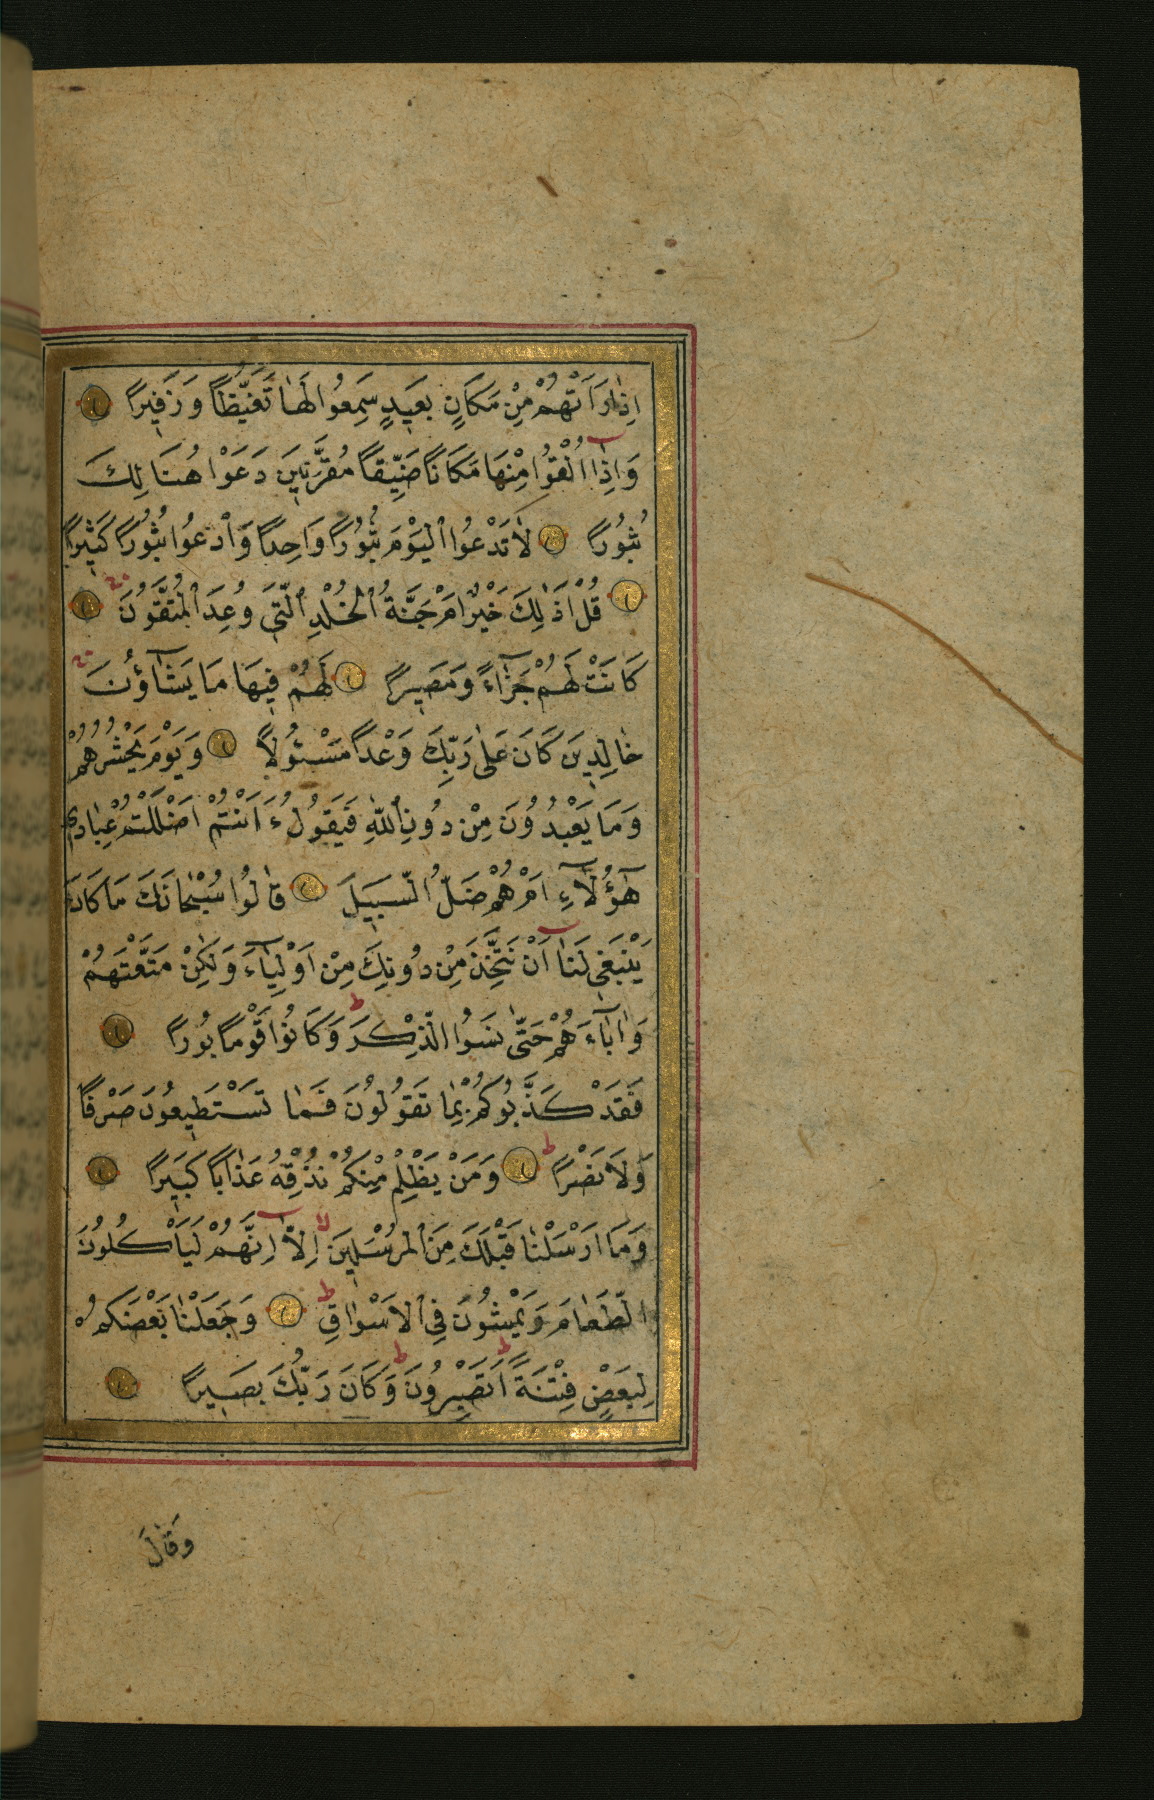 اِذَا رَاَتْهُمْ مِنْ مَكَانٍ بَعِيدٍ سَمِعُوا لَهَا تَغَيُّظًا وَزَفِيرًا
وَاِذَٓا اُلْقُوا مِنْهَا مَكَانًا ضَيِّقًا مُقَرَّنِينَ دَعَوْا هُنَالِكَ
ثُبُورًا لَا تَدْعُوا الْيَوْمَ ثُبُورًا وَاحِدًا وَادْعُوا ثُبُورًا كَثِيرًا
قُلْ اَذٰلِكَ خَيْرٌ اَمْ جَنَّةُ الْخُلْدِ الَّتِي وُعِدَ الْمُتَّقُونَ
كَانَتْ لَهُمْ جَزَٓاءً وَمَصِيرًا لَهُمْ فِيهَا مَا يَشَٓاؤُنَ
خَالِدِينَ كَانَ عَلٰى رَبِّكَ وَعْدًا مَسْئُولًا وَيَوْمَ يَحْشُرُهُمْ
وَمَا يَعْبُدُونَ مِنْ دُونِ اللّٰهِ فَيَقُولُ ءَاَنْتُمْ اَضْلَلْتُمْ عِبَادِي
هٰٓؤُلَٓاءِ اَمْ هُمْ ضَلُّوا السَّبِيلَ قَالُوا سُبْحَانَكَ مَا كَانَ
يَنْبَغِي لَنَٓا اَنْ نَتَّخِذَ مِنْ دُونِكَ مِنْ اَوْلِيَٓاءَ وَلٰكِنْ مَتَّعْتَهُمْ
وَاٰبَٓاءَهُمْ حَتّٰى نَسُوا الذِّكْرَ ط وَكَانُوا قَوْمًا بُورًا
فَقَدْ كَذَّبُوكُمْ بِمَا تَقُولُونَ فَمَا تَسْتَطِيعُونَ صَرْفًا
وَلَا نَصْرًا ط وَمَنْ يَظْلِمْ مِنْكُمْ نُذِقْهُ عَذَابًا كَبِيرًا
وَمَا اَرْسَلْنَا قَبْلَكَ مِنَ الْمُرْسَلِينَ لا اِلَّٓا اِنَّهُمْ لَيَاْكُلُونَ
الطَّعَامَ وَيَمْشُونَ فِي الْاَسْوَاقِ ط وَجَعَلْنَا بَعْضَكُمْ
لِبَعْضٍ فِتْنَةً ط اَتَصْبِرُونَ ط وَكَانَ رَبُّكَ بَصِيرًا
وَقَالَ